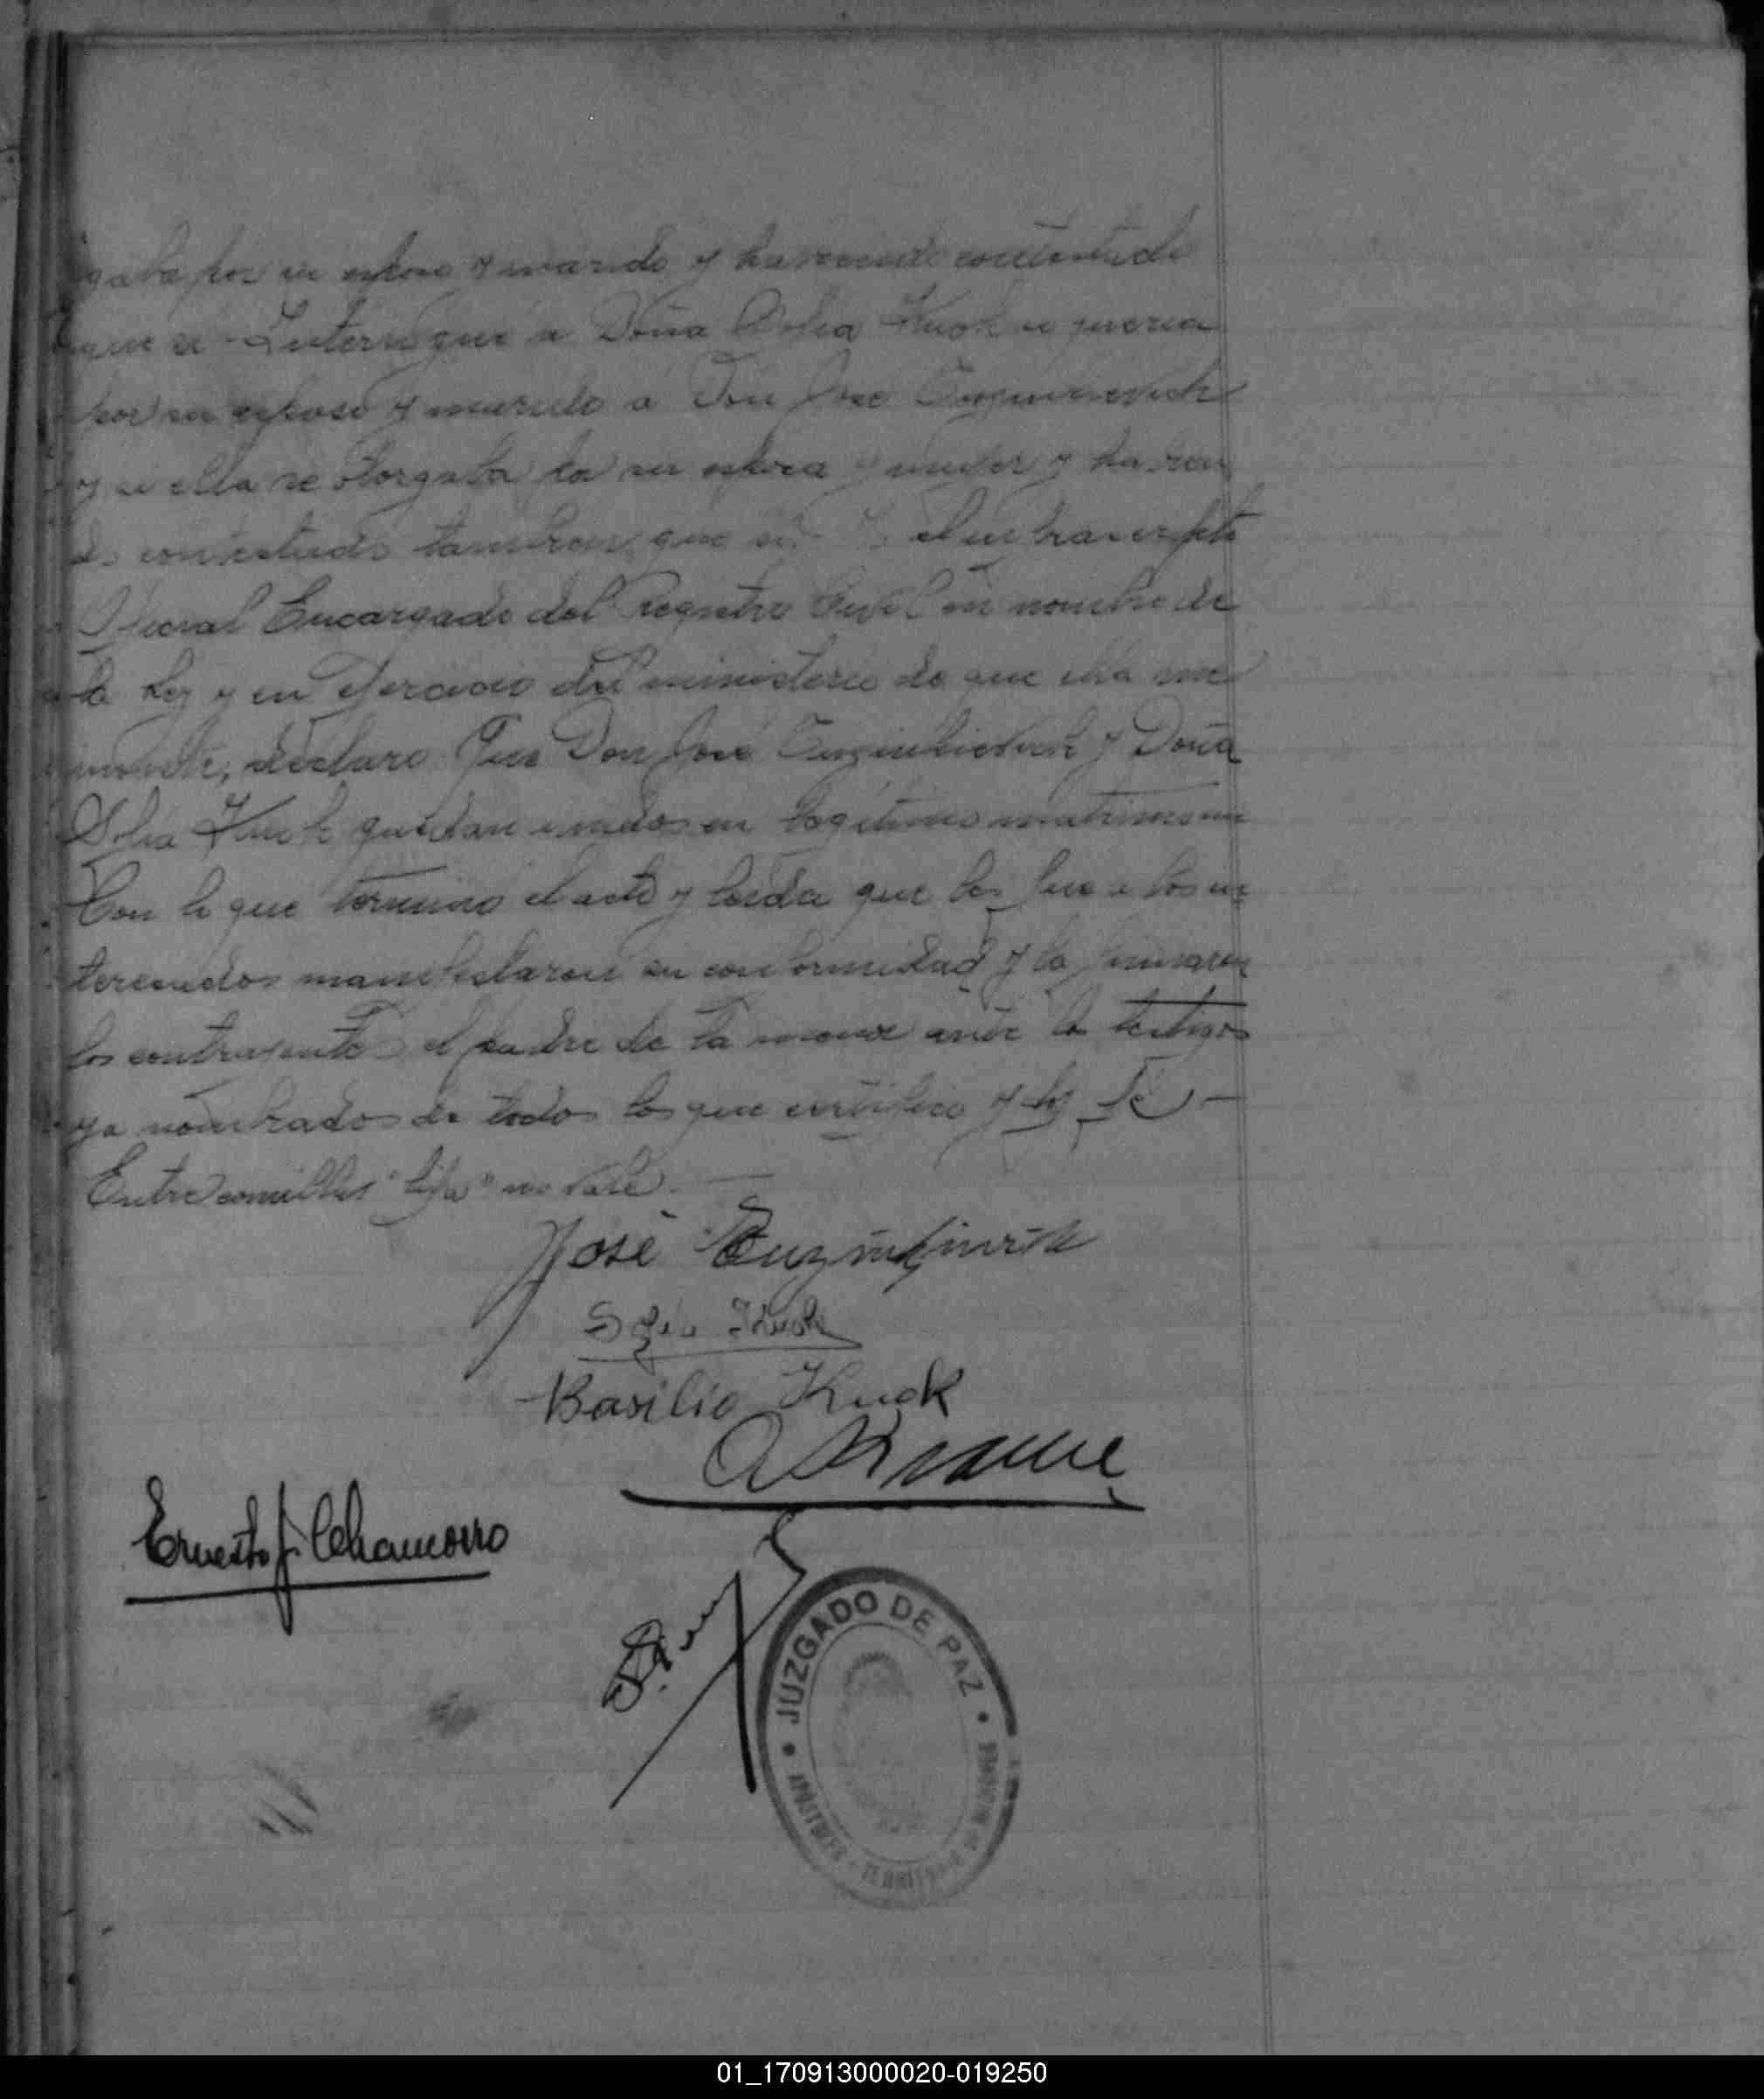 gaba por su esposo y marido y habiendo contestado
que si Interrogué a Doña Sofia Kuok si queria
por su esposo y marido a Don José
y si ella se otorgaba por su esposa y mujer y habien
do contestado tambien que si el infrascripto
Oficial Encargado del Registro Civil en nombre de
la Ley y en ejercicio del ministerio de que ella me
inviste, declaro Que Don José y Doña
Sofia Kuok quedan unidos en legitimo matrimonio
Con lo que termino el acto y leida que les fue a los in
teresados manifestaron su conformidad y la firmaron
los contrayentes el padre de la menor ante los testigos
ya nombrados de todos los que certifico y doy Fé —
Entre comillas " " no vale. —
José
Sofia Kuok
Basilio Kuok
Ernesto J. Chamorro
JUZGADO DE PAZ
APOSTOLES - TERRITORIO DE MISIONES
01_170913000020-019250